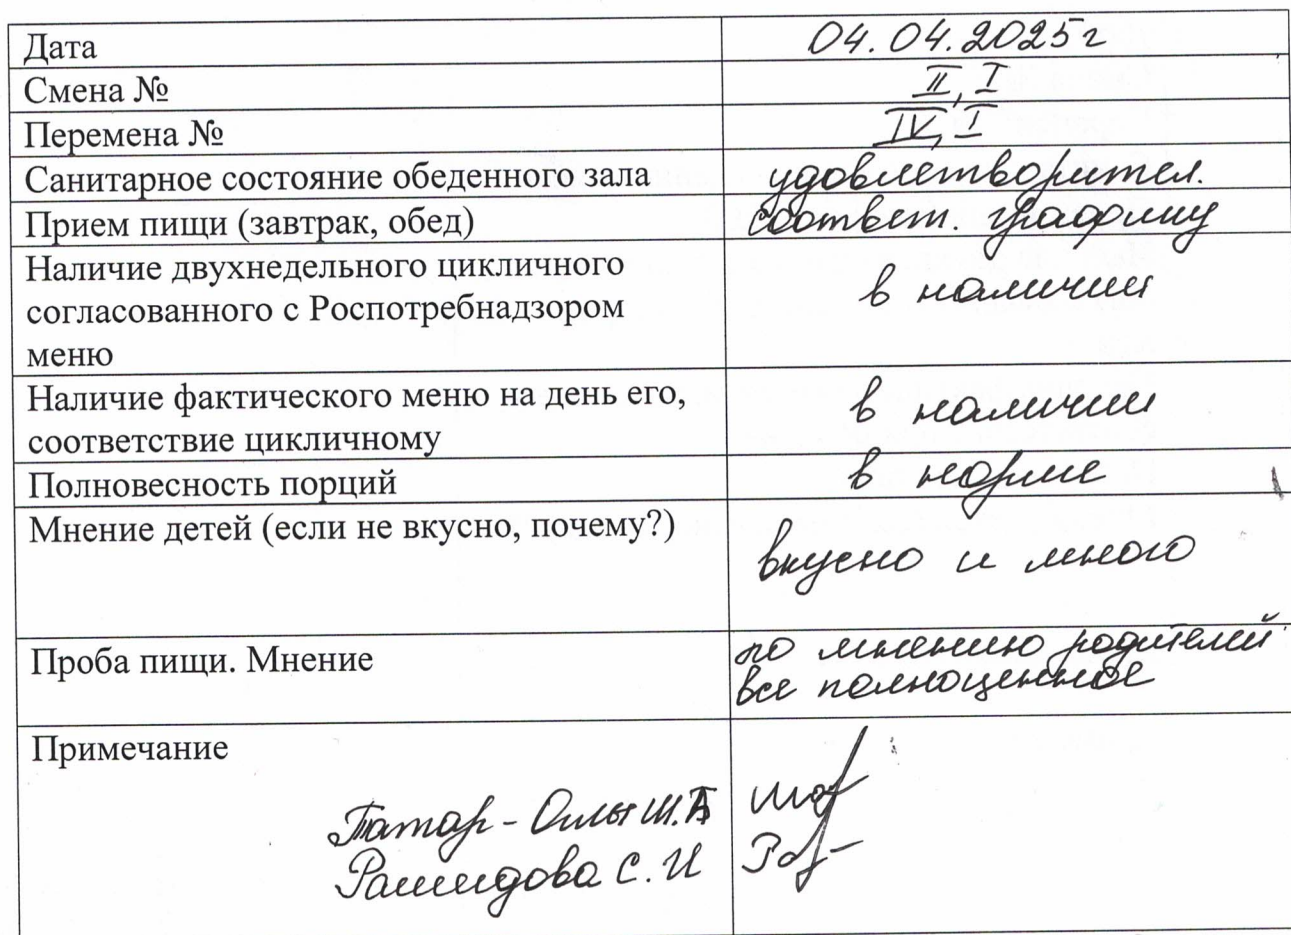 Дата 04.04.2025г
Смена № II, I
Перемена № IV, I
Санитарное состояние обеденного зала удовлетворител.
Прием пищи (завтрак, обед) соответ. графику
Наличие двухнедельного цикличного
согласованного с Роспотребнадзором
меню
в наличии
Наличие фактического меню на день его,
соответствие цикличному
в наличии
Полновесность порций в норме
Мнение детей (если не вкусно, почему?)
вкусно и много
Проба пищи. Мнение
по мнению родителей
все полноценное
Примечание
Татар- Ш.
Рашидова С. И